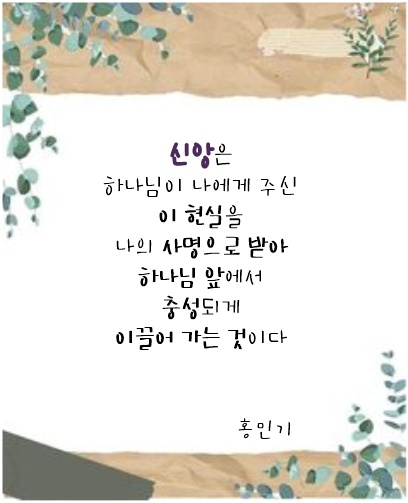 신앙은
하나님이 나에게 주신
이 현실을
나의 사명으로 받아
하나님 앞에서
충성되게
이끌어 가는 것이다
홍민기